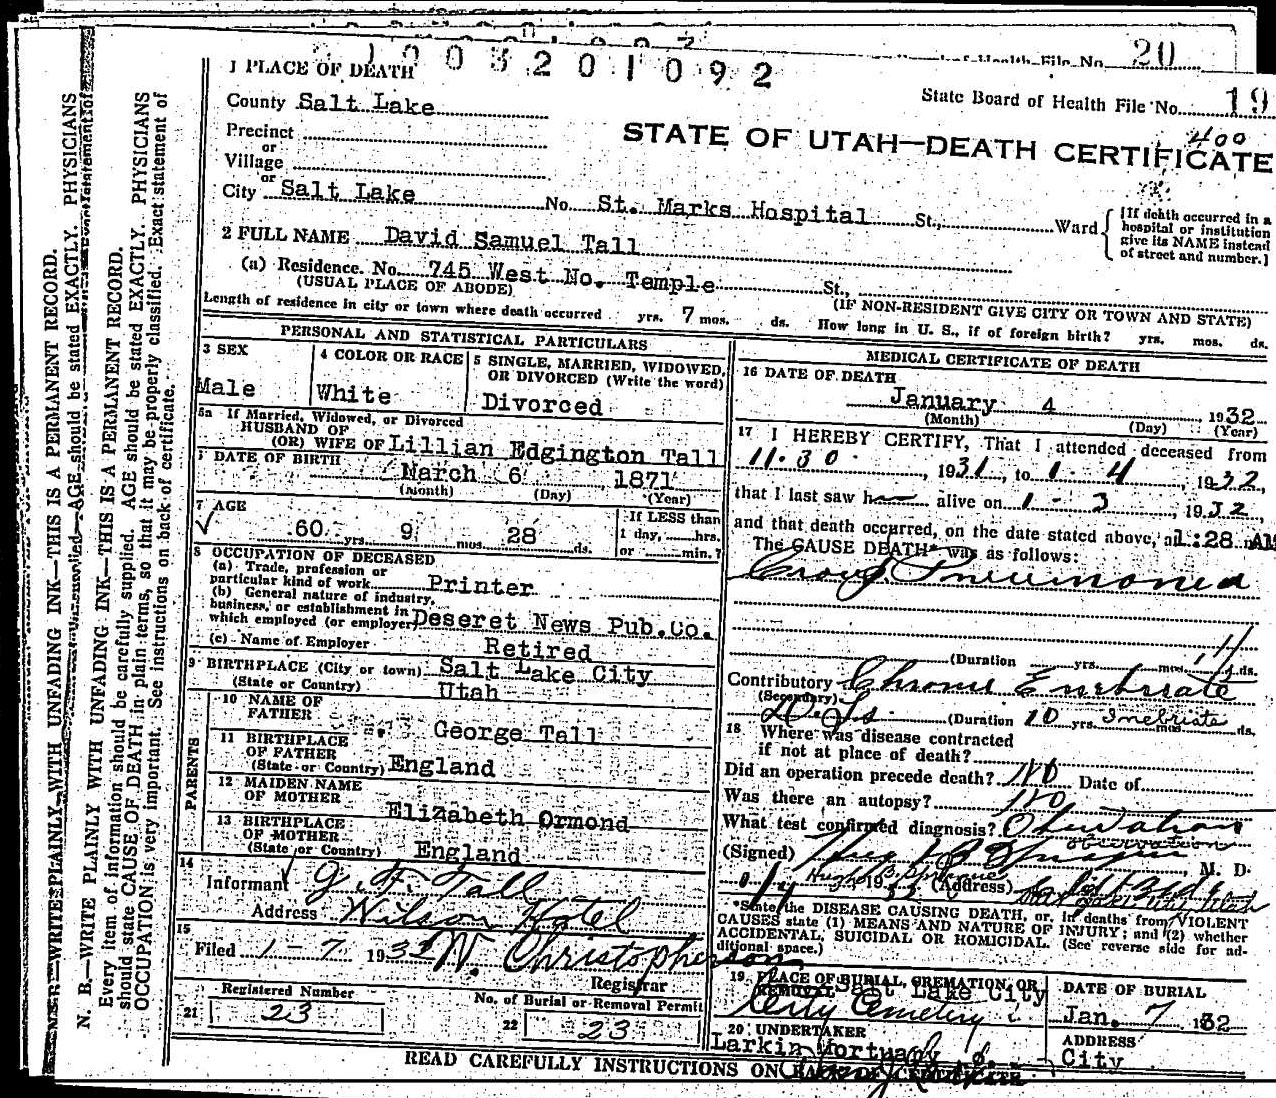 20
1003201092
1 PLACE OF DEATH
State Board of Health File No. 19
County Salt Lake
400
STATE OF UTAH—DEATH CERTIFICATE
Precinct
or
Village
or
City Salt Lake No. St. Marks Hospital St., Ward
[If death occurred in a hospital or institution give its NAME instead of street and number.]
2 FULL NAME David Samuel Tall
(a) Residence. No. 745 West No. Temple St.,
(USUAL PLACE OF ABODE) (IF NON-RESIDENT GIVE CITY OR TOWN AND STATE)
Length of residence in city or town where death occurred yrs. 7 mos. ds. How long in U. S., if of foreign birth? yrs. mos. ds.
PERSONAL AND STATISTICAL PARTICULARS
3 SEX
Male
4 COLOR OR RACE
White
5 SINGLE, MARRIED, WIDOWED, OR DIVORCED (Write the word)
Divorced
5a If Married, Widowed, or Divorced
HUSBAND OF
(OR) WIFE OF Lillian Edgington Tall
DATE OF BIRTH
March 6 1871
(Month) (Day) (Year)
7 AGE
60 yrs. 9 mos. 28 ds.
If LESS than
1 day, hrs.
or min.?
8 OCCUPATION OF DECEASED
(a) Trade, profession or
particular kind of work Printer
(b) General nature of industry,
business, or establishment in
which employed (or employer) Deseret News Pub.Co.
(c) Name of Employer Retired
9 BIRTHPLACE (City or town) Salt Lake City
(State or Country) Utah
PARENTS
10 NAME OF
FATHER George Tall
11 BIRTHPLACE
OF FATHER
(State or Country) England
12 MAIDEN NAME
OF MOTHER Elizabeth Ormond
13 BIRTHPLACE
OF MOTHER
(State or Country) England
14
Informant G. F. Tall
Address Wilson Hotel
15
Filed 1-7 1932 W. Christopherson
Registrar
21 Registered Number
23
22 No. of Burial or Removal Permit
23
MEDICAL CERTIFICATE OF DEATH
16 DATE OF DEATH
January 4, 1932
(Month) (Day) (Year)
17 I HEREBY CERTIFY, That I attended deceased from
11-30, 1931, to 1-4, 1932,
that I last saw h alive on 1-3, 1932,
and that death occurred, on the date stated above, at 1:28 AM
The CAUSE DEATH* was as follows:
Pneumonia
(Duration yrs. mos. ds.
Contributory Chronic
(Secondary)
(Duration 10 yrs. Inebriate mos. ds.
18 Where was disease contracted
if not at place of death?
Did an operation precede death? No Date of
Was there an autopsy? No
What test confirmed diagnosis? Observation
observation
(Signed) Hugh B Sprague, M. D.
Hugh B. Sprague
1/4 1932 (Address)
Salt Lake City Utah
*State the DISEASE CAUSING DEATH, or, in deaths from VIOLENT
CAUSES state (1) MEANS AND NATURE OF INJURY; and (2) whether
ACCIDENTAL, SUICIDAL OR HOMICIDAL. (See reverse side for additional space.)
19 PLACE OF BURIAL, CREMATION, OR
REMOVAL Salt Lake City
City Cemetery
DATE OF BURIAL
Jan. 7 1932
20 UNDERTAKER
Larkin Mortuary
ADDRESS
City
READ CAREFULLY INSTRUCTIONS ON BACK OF CERTIFICATE
N. B.—WRITE PLAINLY WITH UNFADING INK—THIS IS A PERMANENT RECORD.
Every item of information should be carefully supplied. AGE should be stated EXACTLY. PHYSICIANS
should state CAUSE OF DEATH in plain terms, so that it may be properly classified. Exact statement of
OCCUPATION is very important. See instructions on back of certificate.